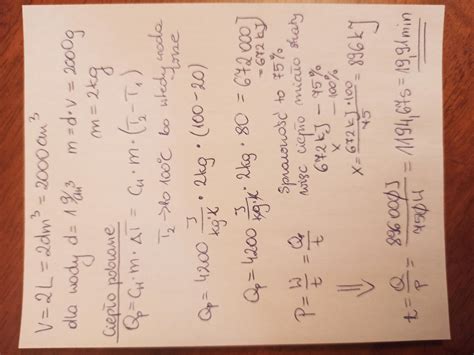 V = 2L = 2dm³ = 2000cm³
dla wody d = 1 g/cm³ m = d·V = 2000g
m = 2kg
ciepło pobrane
Qp = Cw·m·ΔT = Cw·m·(T₂-T₁)
T₂ → to 100°C bo wtedy woda wrze
Qp = 4200 J/kg·K · 2kg · (100-20)
Qp = 4200 J/kg·K · 2kg · 80 = 672 000 J
= 672 kJ
Sprawność to 75%
więc ciepło miało straty
672kJ - 75%
x - 100%
x = 672kJ·100/75 = 896kJ
P = W/t = Q/t
⇓
t = Q/P = 896000J/750W = 1194,67s = 19,91min